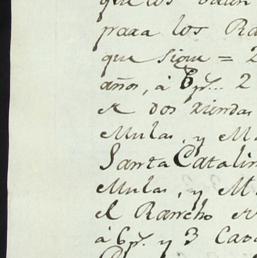 que los
para los Ra
que sigue = 2
años, á 6 p.^s.. 2
de dos riendas
Mulas, y M
Santa Catalin
Mulas, y M
el Rancho de
á 6 p.^s. y 3 Cava